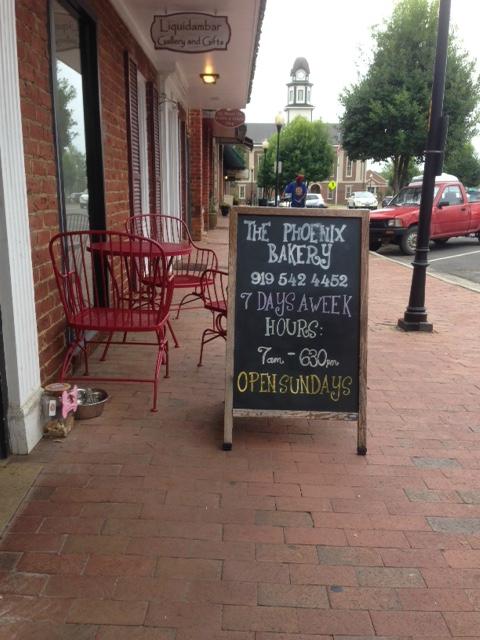 Liquidambar
Gallery and Gifts
THE PHOENIX
BAKERY
919 542 4452
7 DAYS A WEEK
HOURS:
7am - 630pm
OPEN SUNDAYS